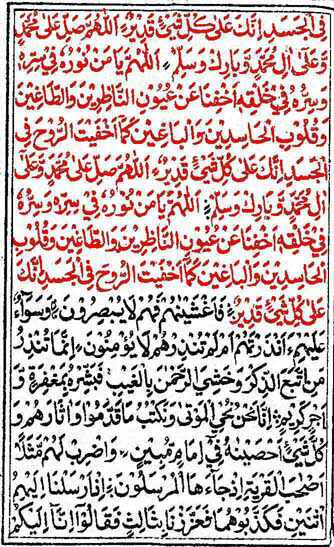 فى الجسد انك على كل شئ قدير اللهم صل على محمد
وعلى ال محمد وبارك وسلم اللهم يا من نوره فى سره
وسره فى خلقه اخفنا عن عيون الناظرين والطاغين
وقلوب الحاسدين والباغين كما اخفيت الروح فى
الجسد انك على كل شئ قدير اللهم صل على محمد وعلى
ال محمد وبارك وسلم اللهم يا من نوره فى سره وسره
فى خلقه اخفنا عن عيون الناظرين والطاغين وقلوب
الحاسدين والباغين كما اخفيت الروح فى الجسد انك
على كل شئ قدير فاغشينهم فهم لا يبصرون وسواء
عليهم ءانذرتهم ام لم تنذرهم لا يؤمنون انما تنذر
من اتبع الذكر وخشى الرحمن بالغيب فبشره بمغفرة و
اجر كريم انا نحن نحى الموتى ونكتب ما قدموا واثارهم و
كل شئ احصينه فى امام مبين واضرب لهم مثلا
اصحب القرية اذ جاءها المرسلون اذ ارسلنا اليهم
اثنين فكذبوهما فعززنا بثالث فقالوا انا اليكم